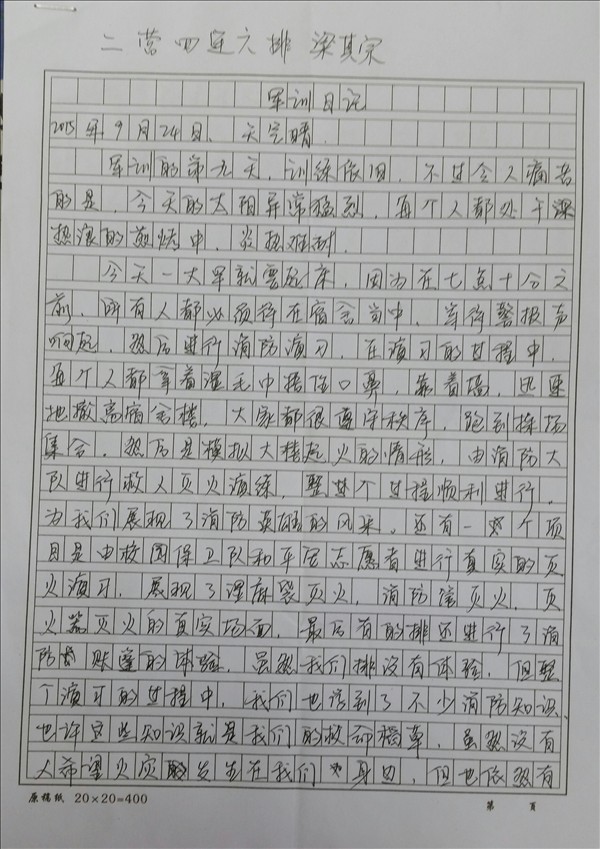 二营四连六排 梁其宗
军训日记
2015年9月24日、天气晴.
军训的第九天,训练依旧,不过令人痛苦
的是,今天的太阳异常猛烈,每个人都处于滚
热浪的煎烤中,炎热难耐.
今天一大早就要起床,因为在七点十分之
前,所有人都必须待在宿舍当中,等待警报声
响起,然后进行消防演习.在演习的过程中,
每个人都拿着湿毛巾捂住口鼻,靠着墙,迅速
地撤离宿舍楼,大家都很遵守秩序,跑到操场
集合.然后是模拟大楼起火的情形,由消防大
队进行救人灭火演练,整个过程顺利进行,
为我们展现了消防英雄的风采.还有一个项
目是由校园保卫队和平层志愿者进行真实的灭
火演习,展现了湿麻袋灭火,消防馆灭火,灭
火器灭火的真实场面.最后有的排还进行了消
防账篷的体验.虽然我们排没有体验,但整
个演习的过程中,我们也学到了不少消防知识,
也许这些知识就是我们的救命稻草.虽然没有
人希望火灾的发生在我们身边,但也依然有
原稿纸 20×20=400 第 页